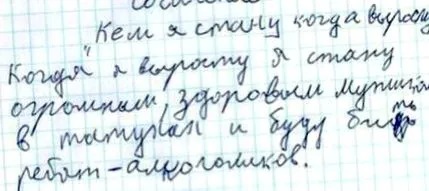 "Кем я стану когда вырасту
Когда я вырасту я стану
огромным, здоровым мужиком
в татухах и буду бить
ребят-алкоголиков.